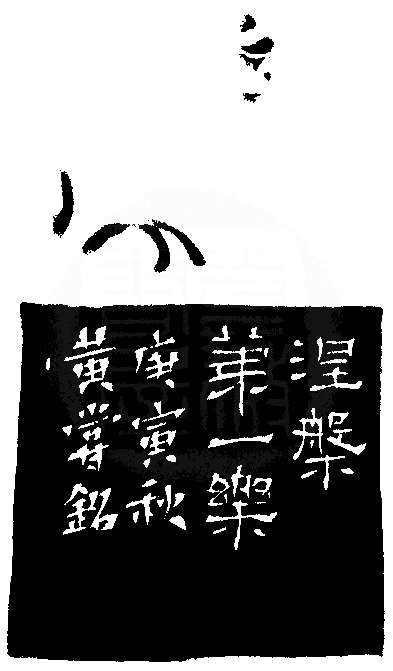 涅槃
第一樂
庚寅秋
黃嘗銘